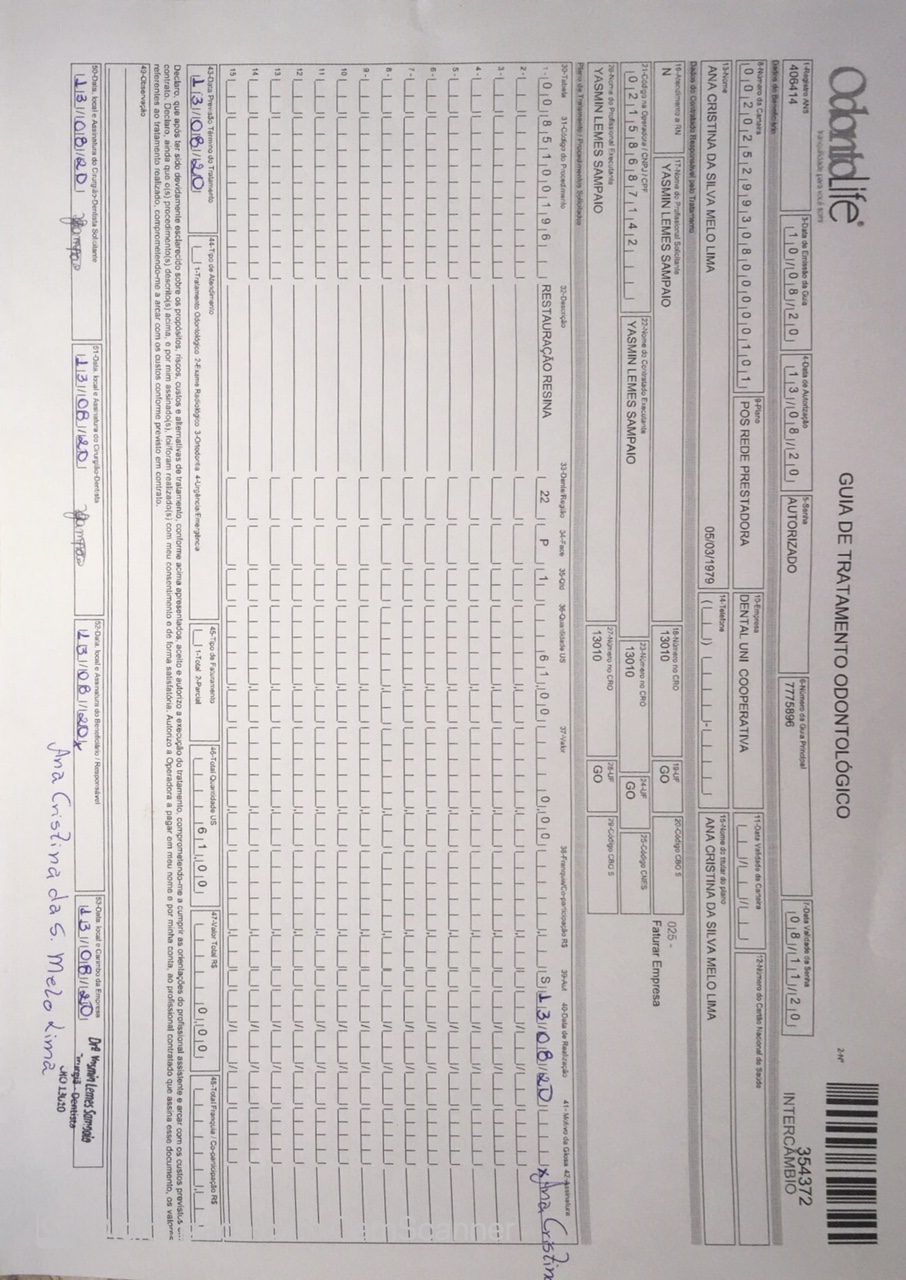 OdontoLife®
tranquilidade para você sorrir
GUIA DE TRATAMENTO ODONTOLÓGICO
2-Nº
354372
INTERCÂMBIO
1-Registro ANS
406414
3-Data de Emissão da Guia
10/08/20
4-Data de Autorização
13/08/20
5-Senha
AUTORIZADO
6-Número da Guia Principal
7775896
7-Data Validade da Senha
08/11/20
Dados do Beneficiário
8-Número da Carteira
00202529930800000101
9-Plano
POS REDE PRESTADORA
10-Empresa
DENTAL UNI COOPERATIVA
11-Data Validade da Carteira
12-Número do Cartão Nacional de Saúde
13-Nome
ANA CRISTINA DA SILVA MELO LIMA
05/03/1979
14-Telefone
15-Nome do titular do plano
ANA CRISTINA DA SILVA MELO LIMA
Dados do Contratado Responsável pelo Tratamento
16-Atendimento a RN
N
17-Nome do Profissional Solicitante
YASMIN LEMES SAMPAIO
18-Número no CRO
13010
19-UF
GO
20-Código CBO S
025 -
Faturar Empresa
21-Código na Operadora / CNPJ / CPF
02158687142
22-Nome do Contratado Executante
YASMIN LEMES SAMPAIO
23-Número no CRO
13010
24-UF
GO
25-Código CNES
26-Nome do Profissional Executante
YASMIN LEMES SAMPAIO
27-Número no CRO
13010
28-UF
GO
29-Código CBO S
Plano de Tratamento / Procedimentos Solicitados
30-Tabela 31-Código do Procedimento 32-Descrição 33-Dente/Região 34-Face 35-Qtd 36-Quantidade US 37-Valor 38-Franquia/Co-participação R$ 39-Aut 40-Data de Realização 41-Motivo da Glosa 42-Assinatura
1- 00 85100196 RESTAURAÇÃO RESINA 22 P 1 61,00 0,00 S 13/08/20 x Ana Cristin
2-
3-
4-
5-
6-
7-
8-
9-
10
11
12
13
14
15
43-Data Previsão Término do Tratamento
13/08/20
44-Tipo de Atendimento
1-Tratamento Odontológico 2-Exame Radiológico 3-Ortodontia 4-Urgência/Emergência
45-Tipo de Faturamento
1-Total 2-Parcial
46-Total Quantidade US
61,00
47-Valor Total R$
0,00
48-Total Franquia / Co-participação R$
Declaro, que após ter sido devidamente esclarecido sobre os propósitos, riscos, custos e alternativas de tratamento, conforme acima apresentados, aceito e autorizo a execução do tratamento, comprometendo-me a cumprir as orientações do profissional assistente e arcar com os custos previstos em
contrato. Declaro, ainda que o(s) procedimento(s) descrito(s) acima, e por mim assinado(s), foi/foram realizado(s) com meu consentimento e de forma satisfatória. Autorizo a Operadora a pagar em meu nome e por minha conta, ao profissional contratado que assina esse documento, os valores
referentes ao tratamento realizado, comprometendo-me a arcar com os custos conforme previsto em contrato.
49-Observação
50-Data, local e Assinatura do Cirurgião-Dentista Solicitante
13/08/20 Sampaio
51-Data, local e Assinatura do Cirurgião-Dentista
13/08/20 Sampaio
52-Data, local e Assinatura do Beneficiário / Responsável
13/08/20 x
Ana Cristina da S. Melo Lima
53-Data, local e Carimbo da Empresa
13/08/20
Drª Yasmin Lemes Sampaio
Cirurgiã-Dentista
CRO 13010